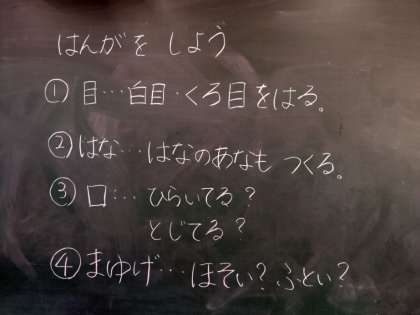 はんがを しよう
① 目…白目・くろ目をはる。
② はな…はなのあなも つくる。
③ 口…ひらいてる?
とじてる?
④ まゆげ…ほそい?ふとい?